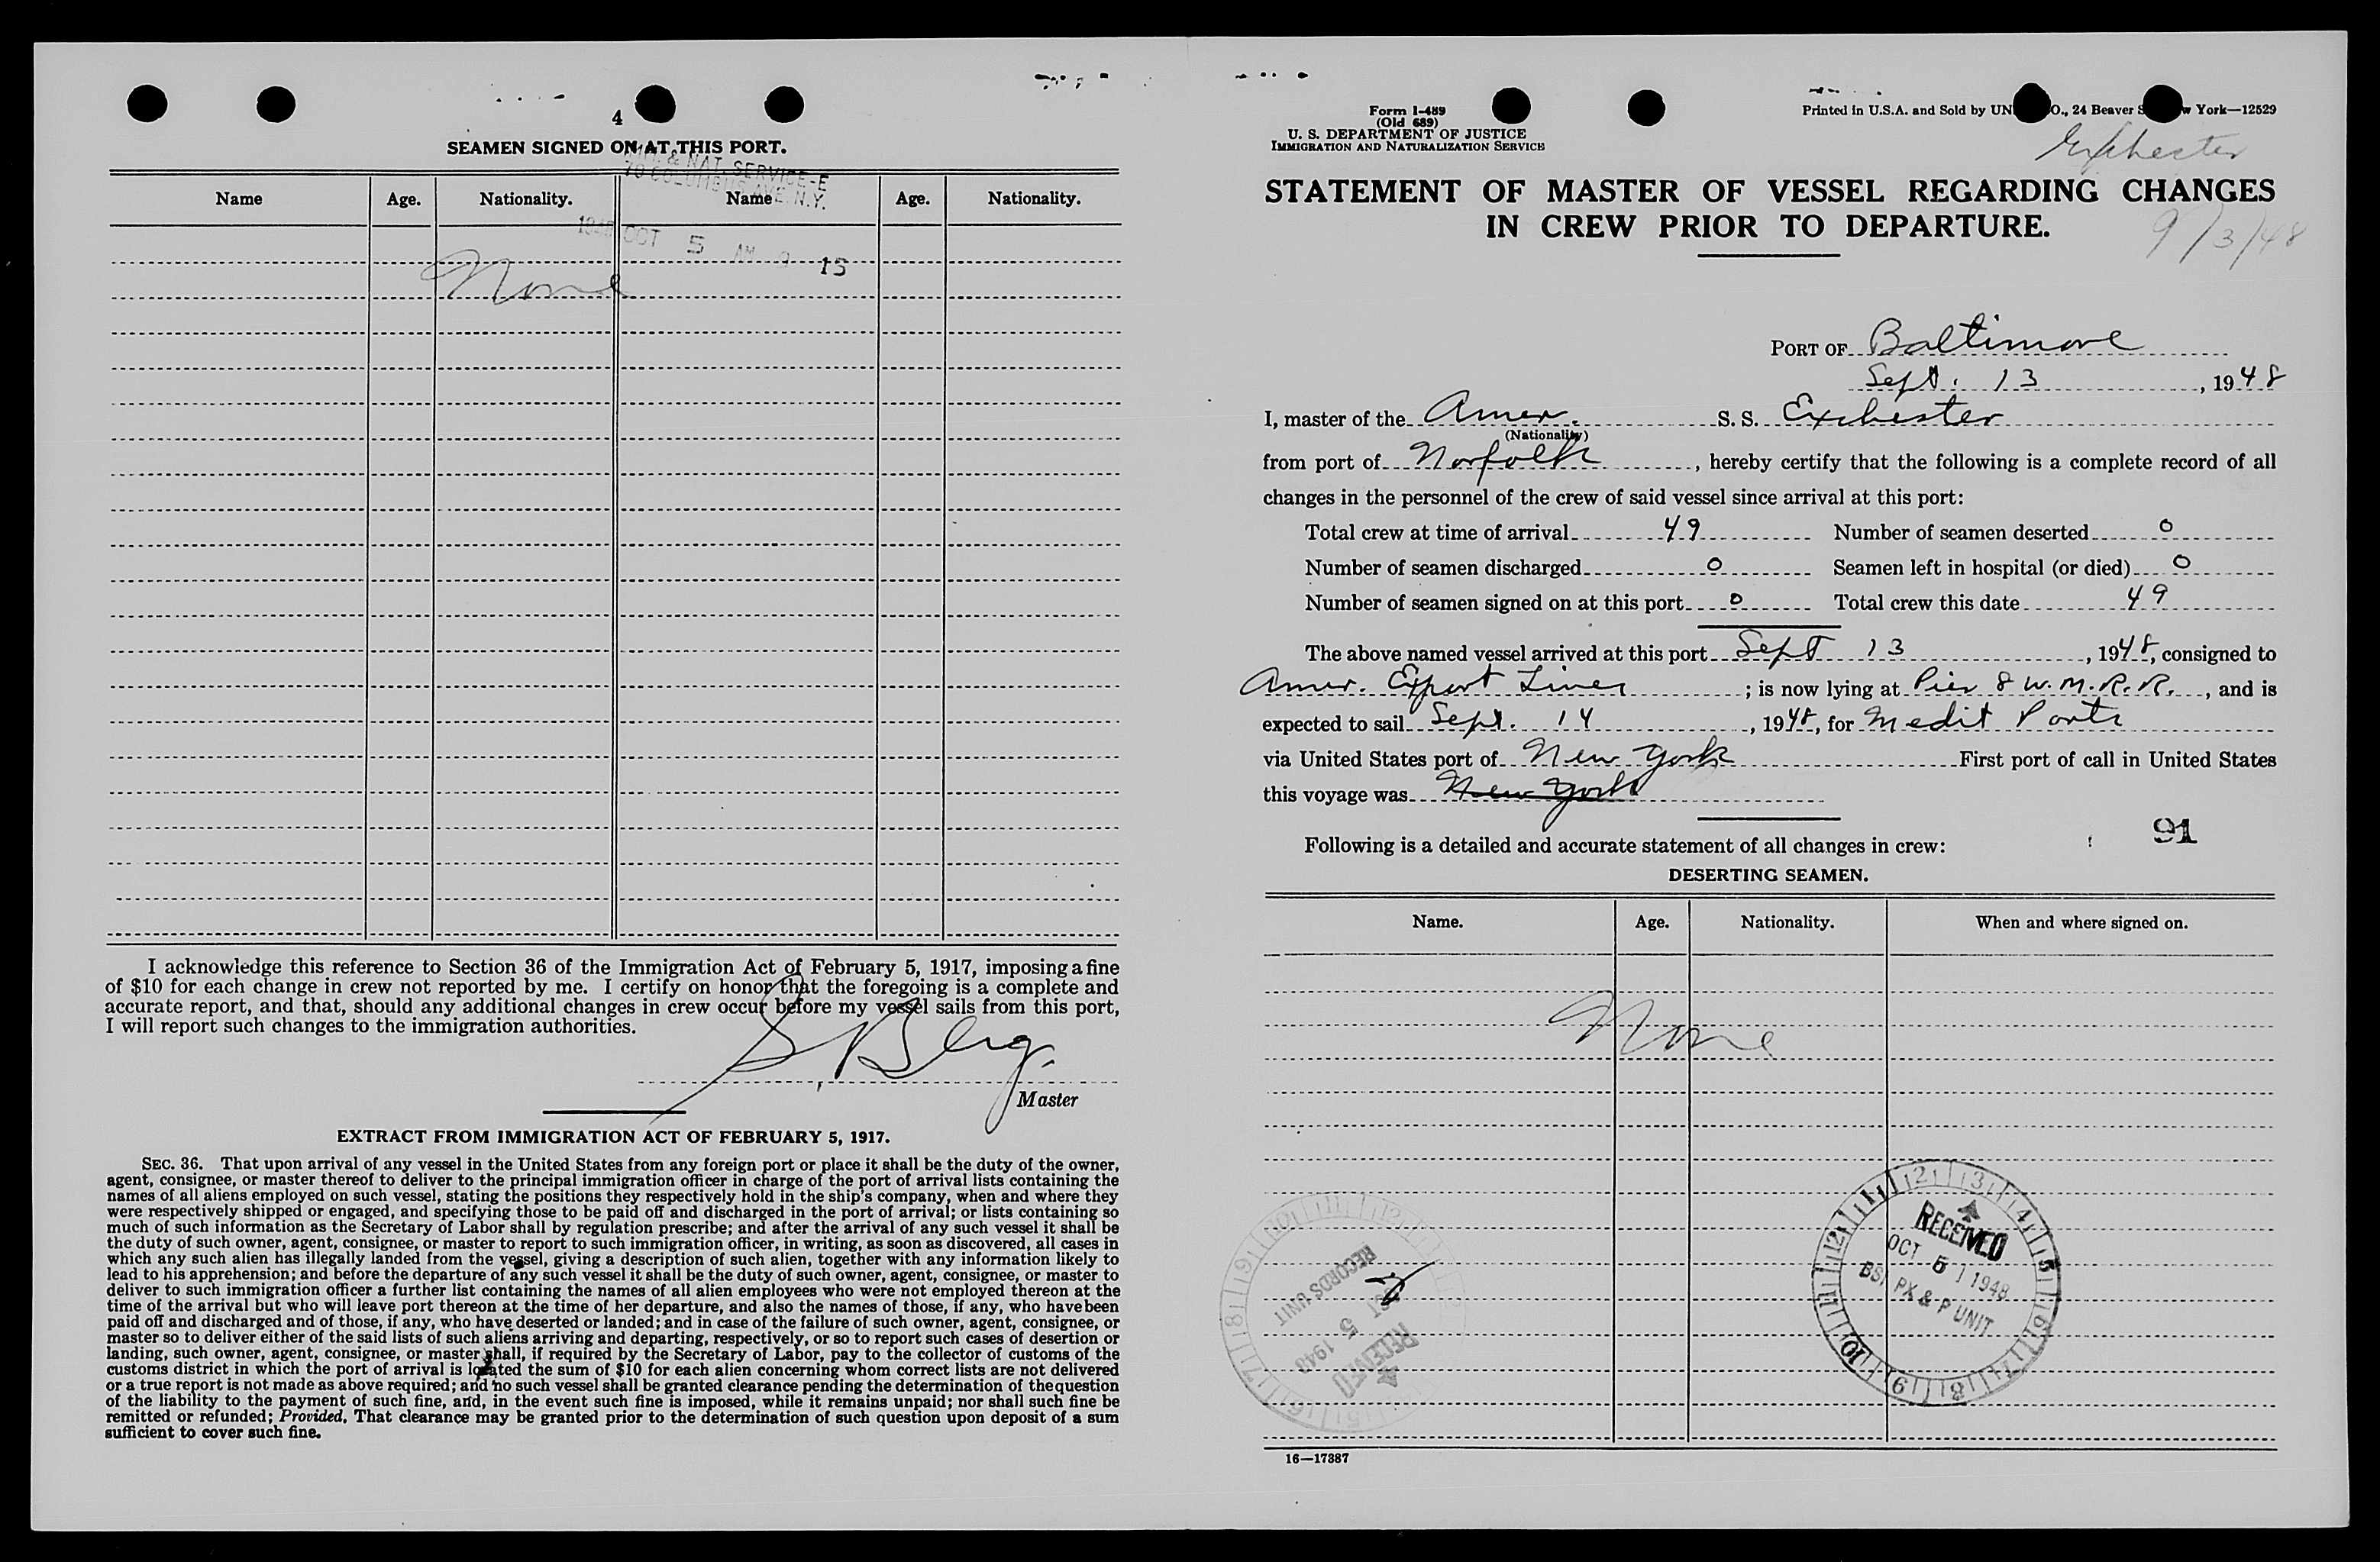 4
SEAMEN SIGNED ON AT THIS PORT.
IMM. & NAT. SERVICE-E
70 COLUMBUS AVE. N.Y.
Name Age. Nationality. Name Age. Nationality.
1948 OCT 5 AM 9 15
None
I acknowledge this reference to Section 36 of the Immigration Act of February 5, 1917, imposing a fine
of $10 for each change in crew not reported by me. I certify on honor that the foregoing is a complete and
accurate report, and that, should any additional changes in crew occur before my vessel sails from this port,
I will report such changes to the immigration authorities.
S Berg.
Master
EXTRACT FROM IMMIGRATION ACT OF FEBRUARY 5, 1917.
SEC. 36. That upon arrival of any vessel in the United States from any foreign port or place it shall be the duty of the owner,
agent, consignee, or master thereof to deliver to the principal immigration officer in charge of the port of arrival lists containing the
names of all aliens employed on such vessel, stating the positions they respectively hold in the ship's company, when and where they
were respectively shipped or engaged, and specifying those to be paid off and discharged in the port of arrival; or lists containing so
much of such information as the Secretary of Labor shall by regulation prescribe; and after the arrival of any such vessel it shall be
the duty of such owner, agent, consignee, or master to report to such immigration officer, in writing, as soon as discovered, all cases in
which any such alien has illegally landed from the vessel, giving a description of such alien, together with any information likely to
lead to his apprehension; and before the departure of any such vessel it shall be the duty of such owner, agent, consignee, or master to
deliver to such immigration officer a further list containing the names of all alien employees who were not employed thereon at the
time of the arrival but who will leave port thereon at the time of her departure, and also the names of those, if any, who have been
paid off and discharged and of those, if any, who have deserted or landed; and in case of the failure of such owner, agent, consignee, or
master so to deliver either of the said lists of such aliens arriving and departing, respectively, or so to report such cases of desertion or
landing, such owner, agent, consignee, or master shall, if required by the Secretary of Labor, pay to the collector of customs of the
customs district in which the port of arrival is located the sum of $10 for each alien concerning whom correct lists are not delivered
or a true report is not made as above required; and no such vessel shall be granted clearance pending the determination of the question
of the liability to the payment of such fine, and, in the event such fine is imposed, while it remains unpaid; nor shall such fine be
remitted or refunded; Provided, That clearance may be granted prior to the determination of such question upon deposit of a sum
sufficient to cover such fine.
Form I-489
(Old 689)
U. S. DEPARTMENT OF JUSTICE
IMMIGRATION AND NATURALIZATION SERVICE
Printed in U.S.A. and Sold by UN O., 24 Beaver S w York—12529
Exchester
STATEMENT OF MASTER OF VESSEL REGARDING CHANGES
IN CREW PRIOR TO DEPARTURE.
9/3/48
PORT OF Baltimore
Sept. 13, 1948
I, master of the Amer. S. S. Exchester
(Nationality)
from port of Norfolk, hereby certify that the following is a complete record of all
changes in the personnel of the crew of said vessel since arrival at this port:
Total crew at time of arrival 49 Number of seamen deserted 0
Number of seamen discharged 0 Seamen left in hospital (or died) 0
Number of seamen signed on at this port 0 Total crew this date 49
The above named vessel arrived at this port Sept 13, 1948, consigned to
Amer. Export Lines; is now lying at Pier 8 W.M.R.R., and is
expected to sail Sept. 14, 1948, for Medit Ports
via United States port of New York First port of call in United States
this voyage was New York
91
Following is a detailed and accurate statement of all changes in crew:
DESERTING SEAMEN.
Name. Age. Nationality. When and where signed on.
None
RECEIVED
OCT 5 1948
BSI PX & P UNIT
RECORDS UNIT
OCT 5 1948
RECEIVED
16—17387